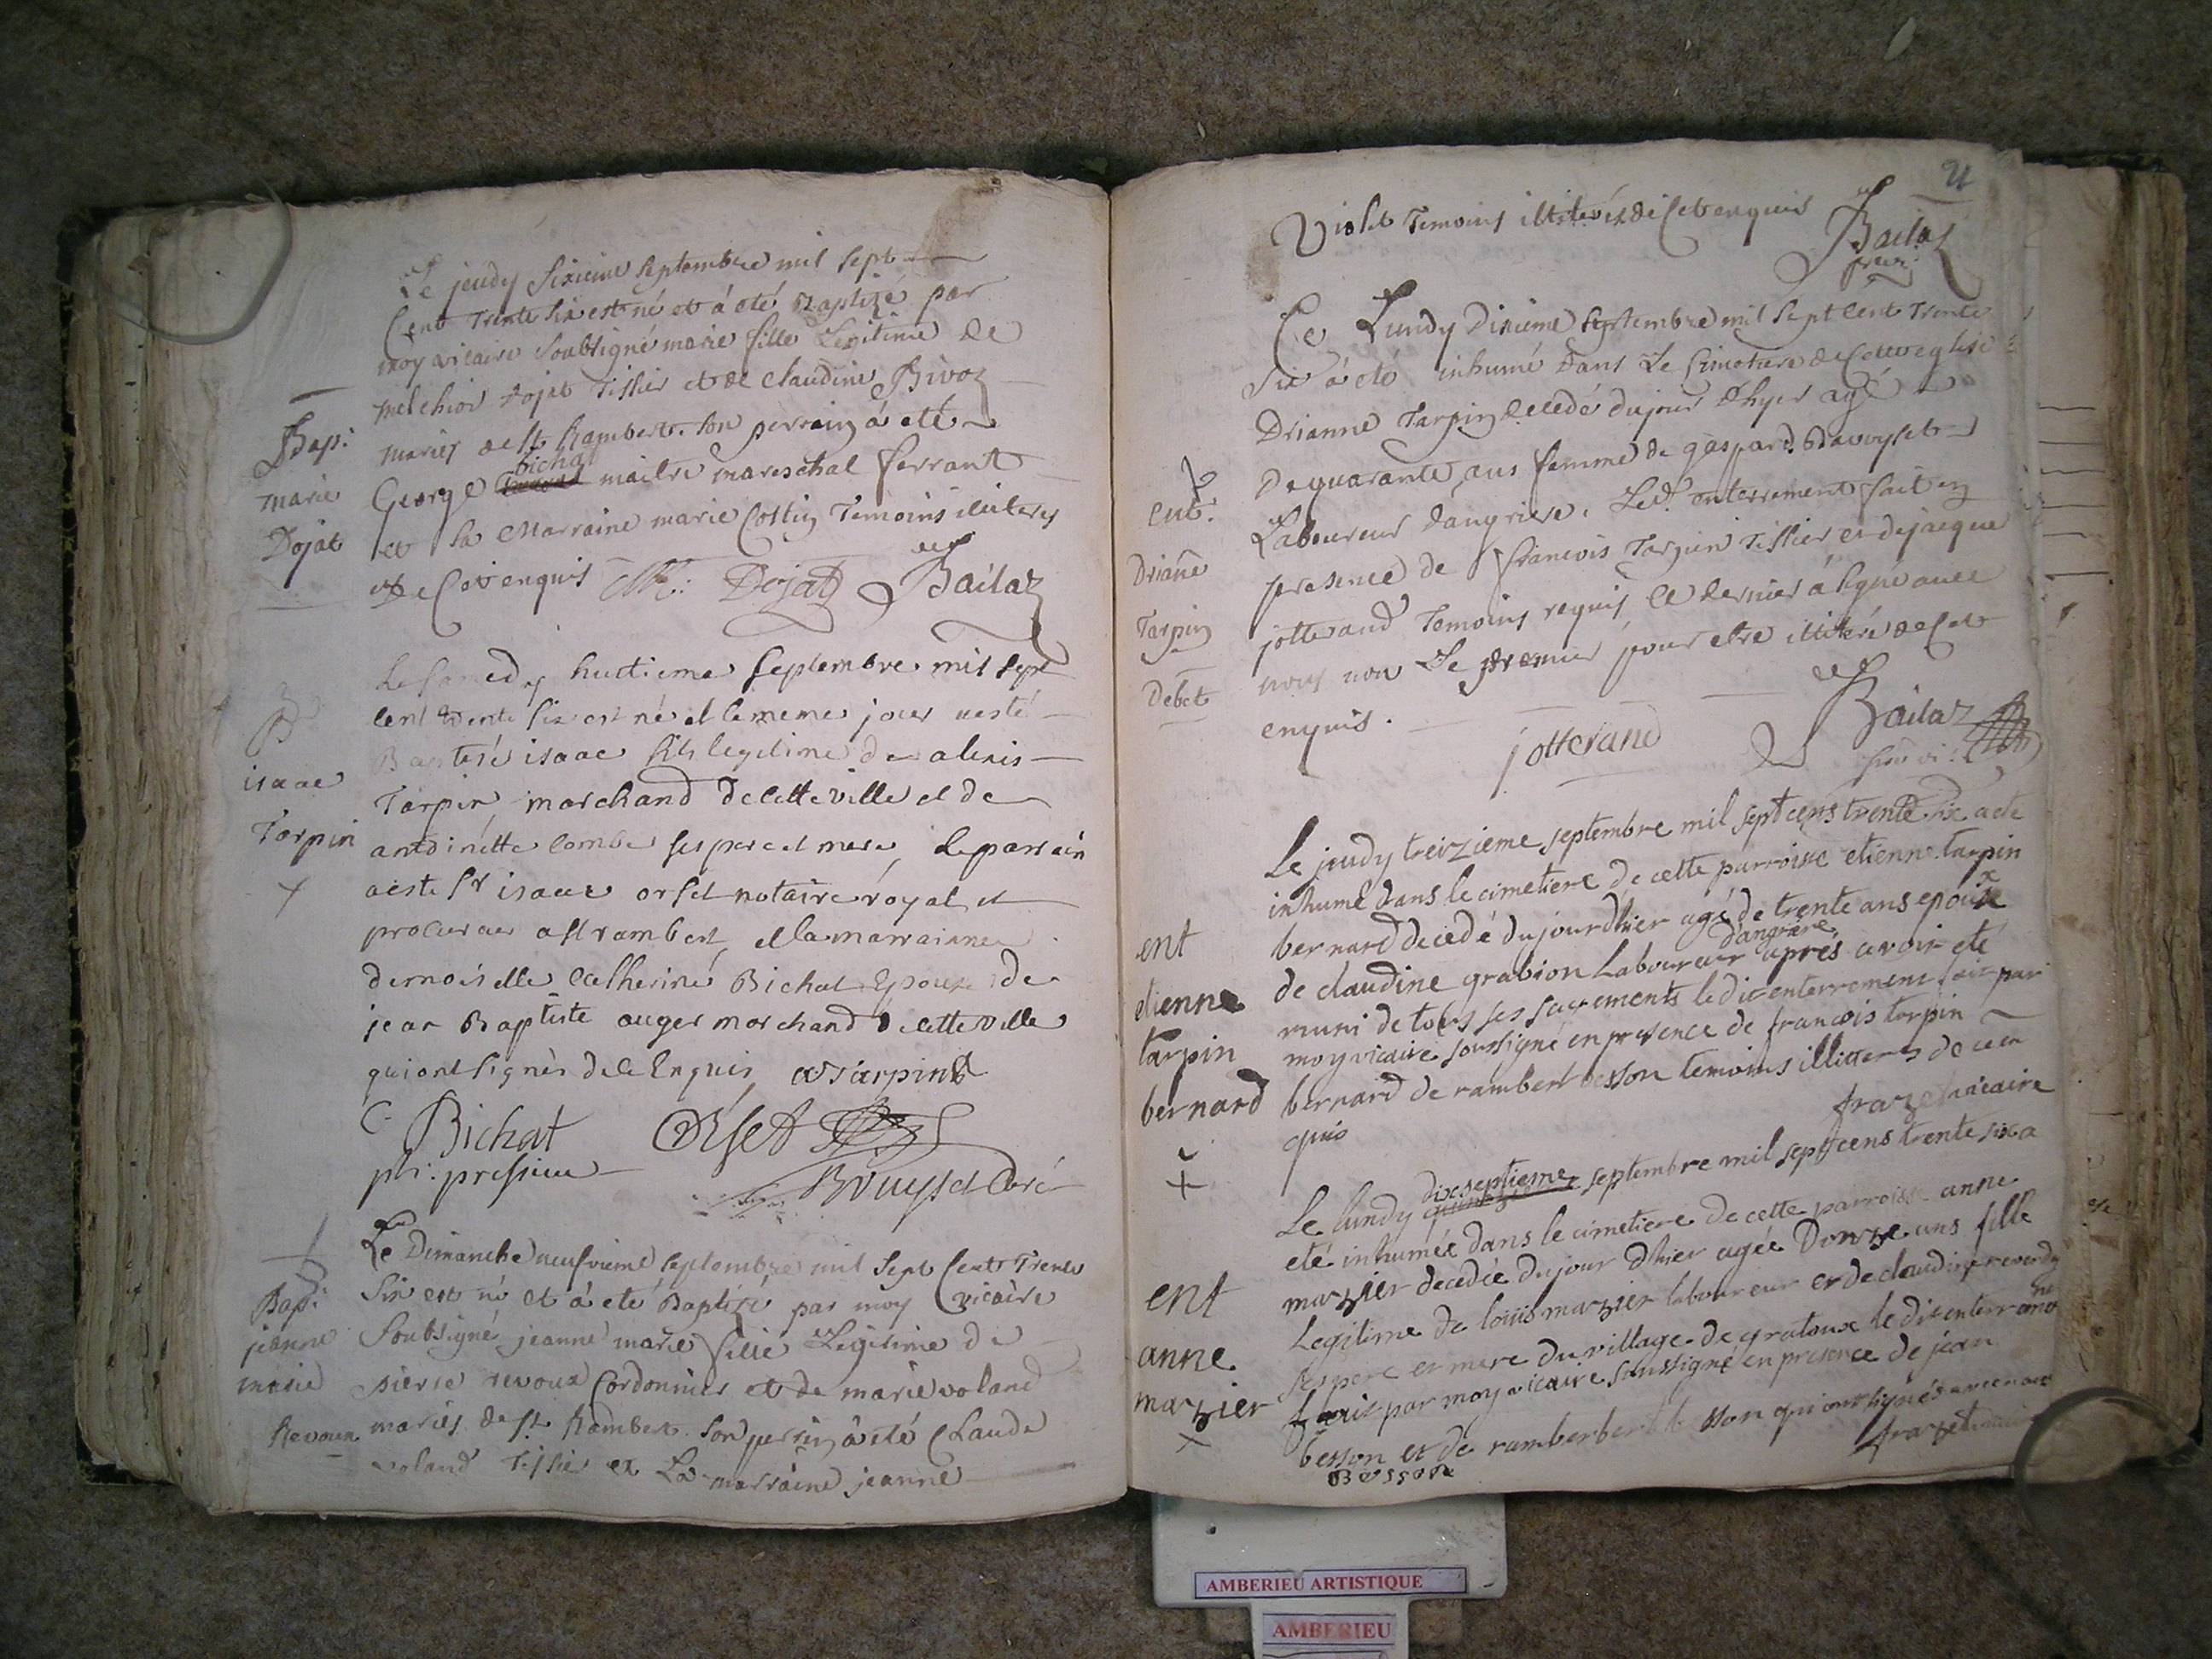 Le jeudy sixieme septembre mil sept
Cent Trente six est né et à oté Baptizé par
moy vicaire soubsigné marie fille Legitime de
melchior Dojat Tissier et de claudine Bivoz
mariés de st Rambert. son perrain à eté
bichat
George maitre mareschal ferrant
et sa Marraine marie Cottin Temoins illiterés
de Ce enquis M: Dojat Bailaz
Bap:
marie
Dojat
Le samedy huitieme septembre mil sept
cent trente six est né et le meme jour a esté
Baptisé isaac fils legitime de alexis
Tarpin marchand de cette ville et de
antoinette combe ses pere et mere, le parrain
a esté sr isaac orset notaire royal et
procureur a st rambert et la marrainne
demoiselle catherine Bichat Epouse de
jean Baptiste auger marchand de cette ville
qui ont signés de ce Enquis a Tarpin
C. Bichat Orset
ph: pressieu
Bouyset Curé
B
isaac
Tarpin
+
Le Dimanche neufvieme septembre mil sept Cent Trente
six est né et à eté Baptizé par moy vicaire
soubsigné jeanne marie fille Legitime de
pierre revoux Cordonnier et de marie voland
mariés de st Rambert. son perrin à eté Claude
voland Tissier et La marraine jeanne
Bap:
jeanne
marie
Revoux
21
Violet Temoins illiterés de Cet enquis Bailaz
Ce Lundy Dixieme septembre mil sept Cent Trente
six à eté inhumé dans Le Cimetiere de Cette eglise
Drianne Tarpin decedé du jour d'hyer agé
De quarante ans femme de gaspard Bouyset
Laboureur dangriere. Led. enterrement fait en
presence de francois Tarpin Tissier et de jacque
jotterand Temoins requis Ce dernier à signé avec
nous non Le premier pour etre illiteré de Cet
enquis.
jotterand Bailaz
vi:
ent.
Drianne
Tarpin
Debet
Le jeudy treizieme septembre mil sept cens trente six a eté
inhumé dans le cimetiere de cette parroisse etienne tarpin
bernard decedé du jour dhier agé de trente ans epoux
d'angriere
de claudine grabion Laboureur apres avoir eté
muni de tous ses sacrements le dit enterrement fait par
moy vicaire soussigné en presence de francois tarpin
bernard de rambert besson temoins illitterés de ce en
quis
fraze vicaire
ent
etienne
tarpin
bernard
+
dixseptieme
Le lundy septembre mil sept cens trente six a
eté inhumée dans le cimetiere de cette parroisse anne
mazier decedée du jour dhier agée Donze ans fille
Legitime de louis mazier laboureur et de claudine
ses pere et mere du village de gratoux le dit enterreme
nt
fait par moy vicaire soussigné en presence de jean
besson et de rambert besson qui ont signés avec nous
Besson
ent
anne
mazier
+
AMBERIEU ARTISTIQUE
AMBERIEU